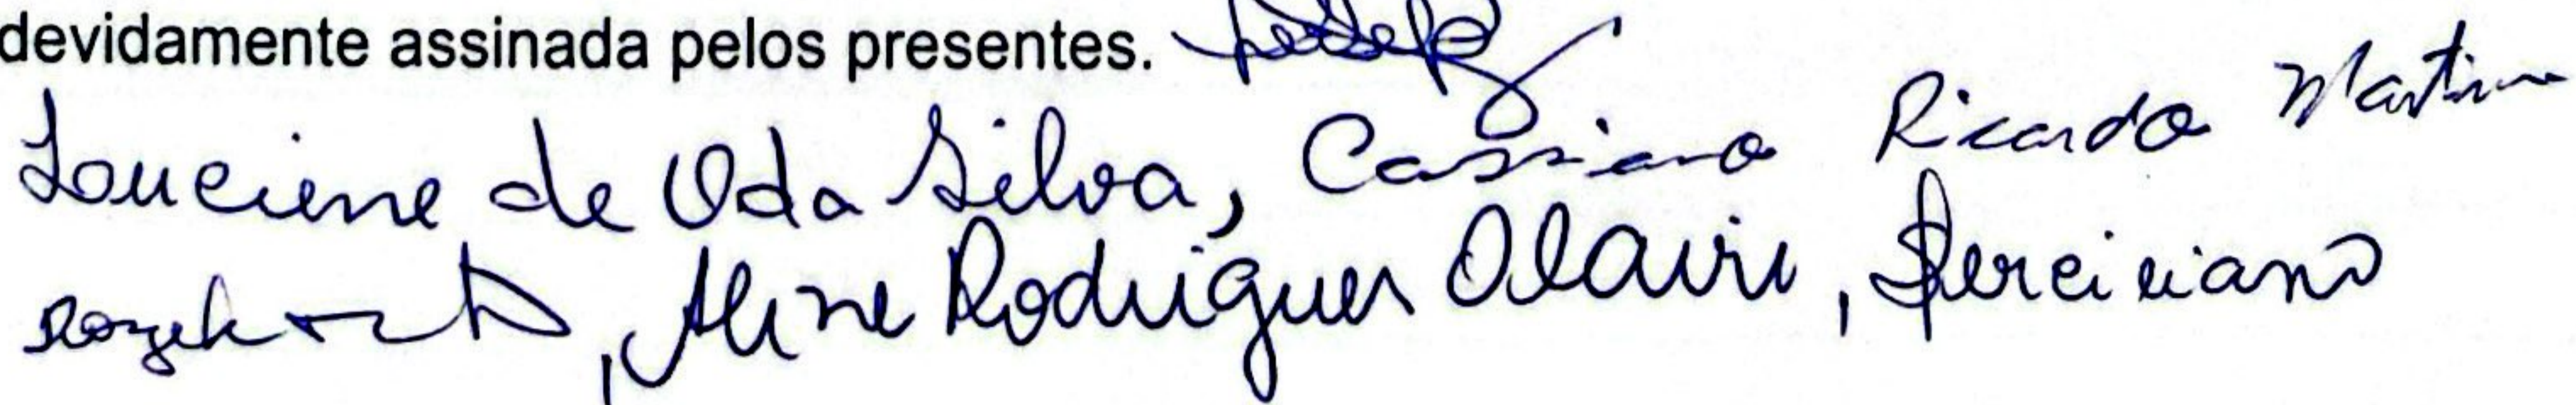 devidamente assinada pelos presentes.
Louciene de Oda Silva, Cassiano Ricardo Martins
, Aline Rodrigues Olaviri,